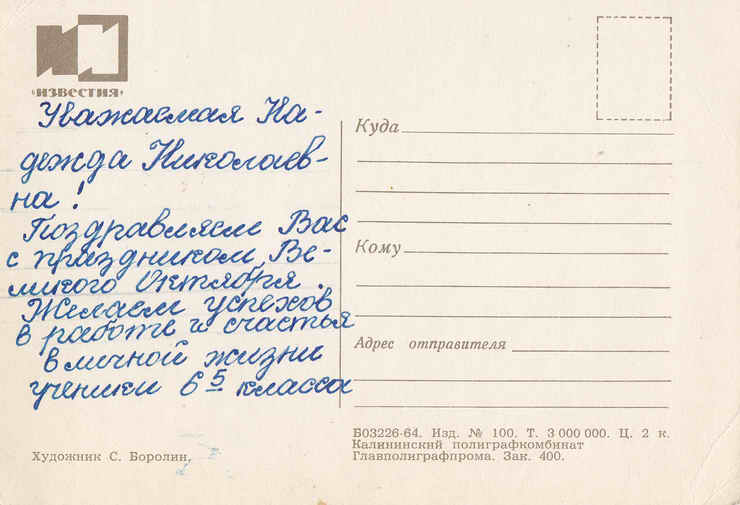 «ИЗВЕСТИЯ»
Уважаемая На-
дежда Николаев-
на!
Поздравляем Вас
с праздником Ве-
ликого Октября.
Желаем успехов
в работе и счастья
в личной жизни
ученики 6 5 класса
Художник С. Боролин.
Куда
Кому
Адрес отправителя
Б03226-64. Изд. № 100. Т. 3 000 000. Ц. 2 к.
Калининский полиграфкомбинат
Главполиграфпрома. Зак. 400.